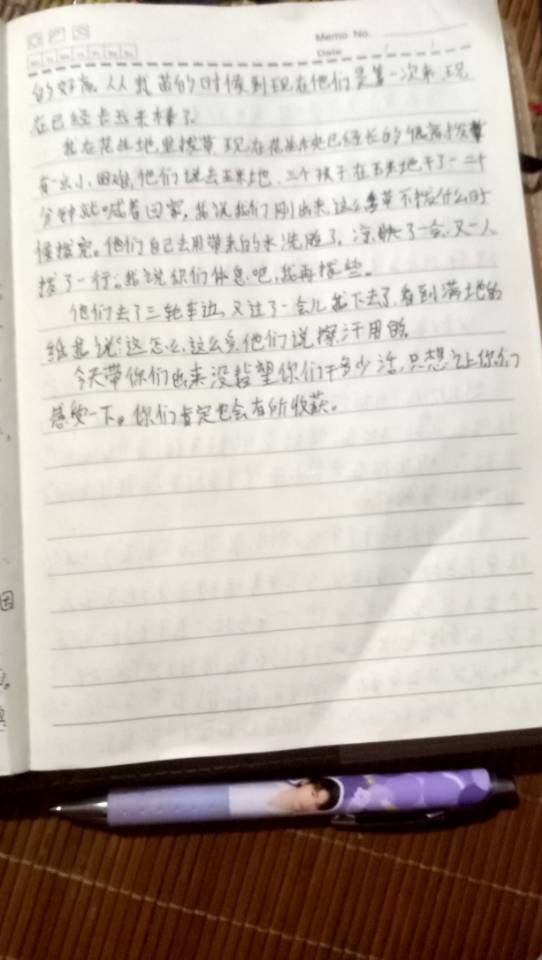 Memo No.
Date
的好高。从载苗的时候到现在他们是第一次来,现
在已经长玉米棒了。
我在花生地里拔草,现在花生央已经长的很高拔草
有点小困难,他们说去玉米地,三个孩子在玉米地干了一二十
分钟就喊着回家,我说我们刚出来,这么多草不拔什么时
候拔完。他们自己去用带来的水洗脸了,凉快了一会,又一人
拔了一行。我说你们休息吧,我再拔些。
他们去了三轮车边,又过了一会儿我下去了,看到满地的
纸我说:这怎么这么多,他们说擦汗用的。
今天带你们出来没指望你们干多少活,只想让你们
感受一下。你们肯定也会有所收获。
因